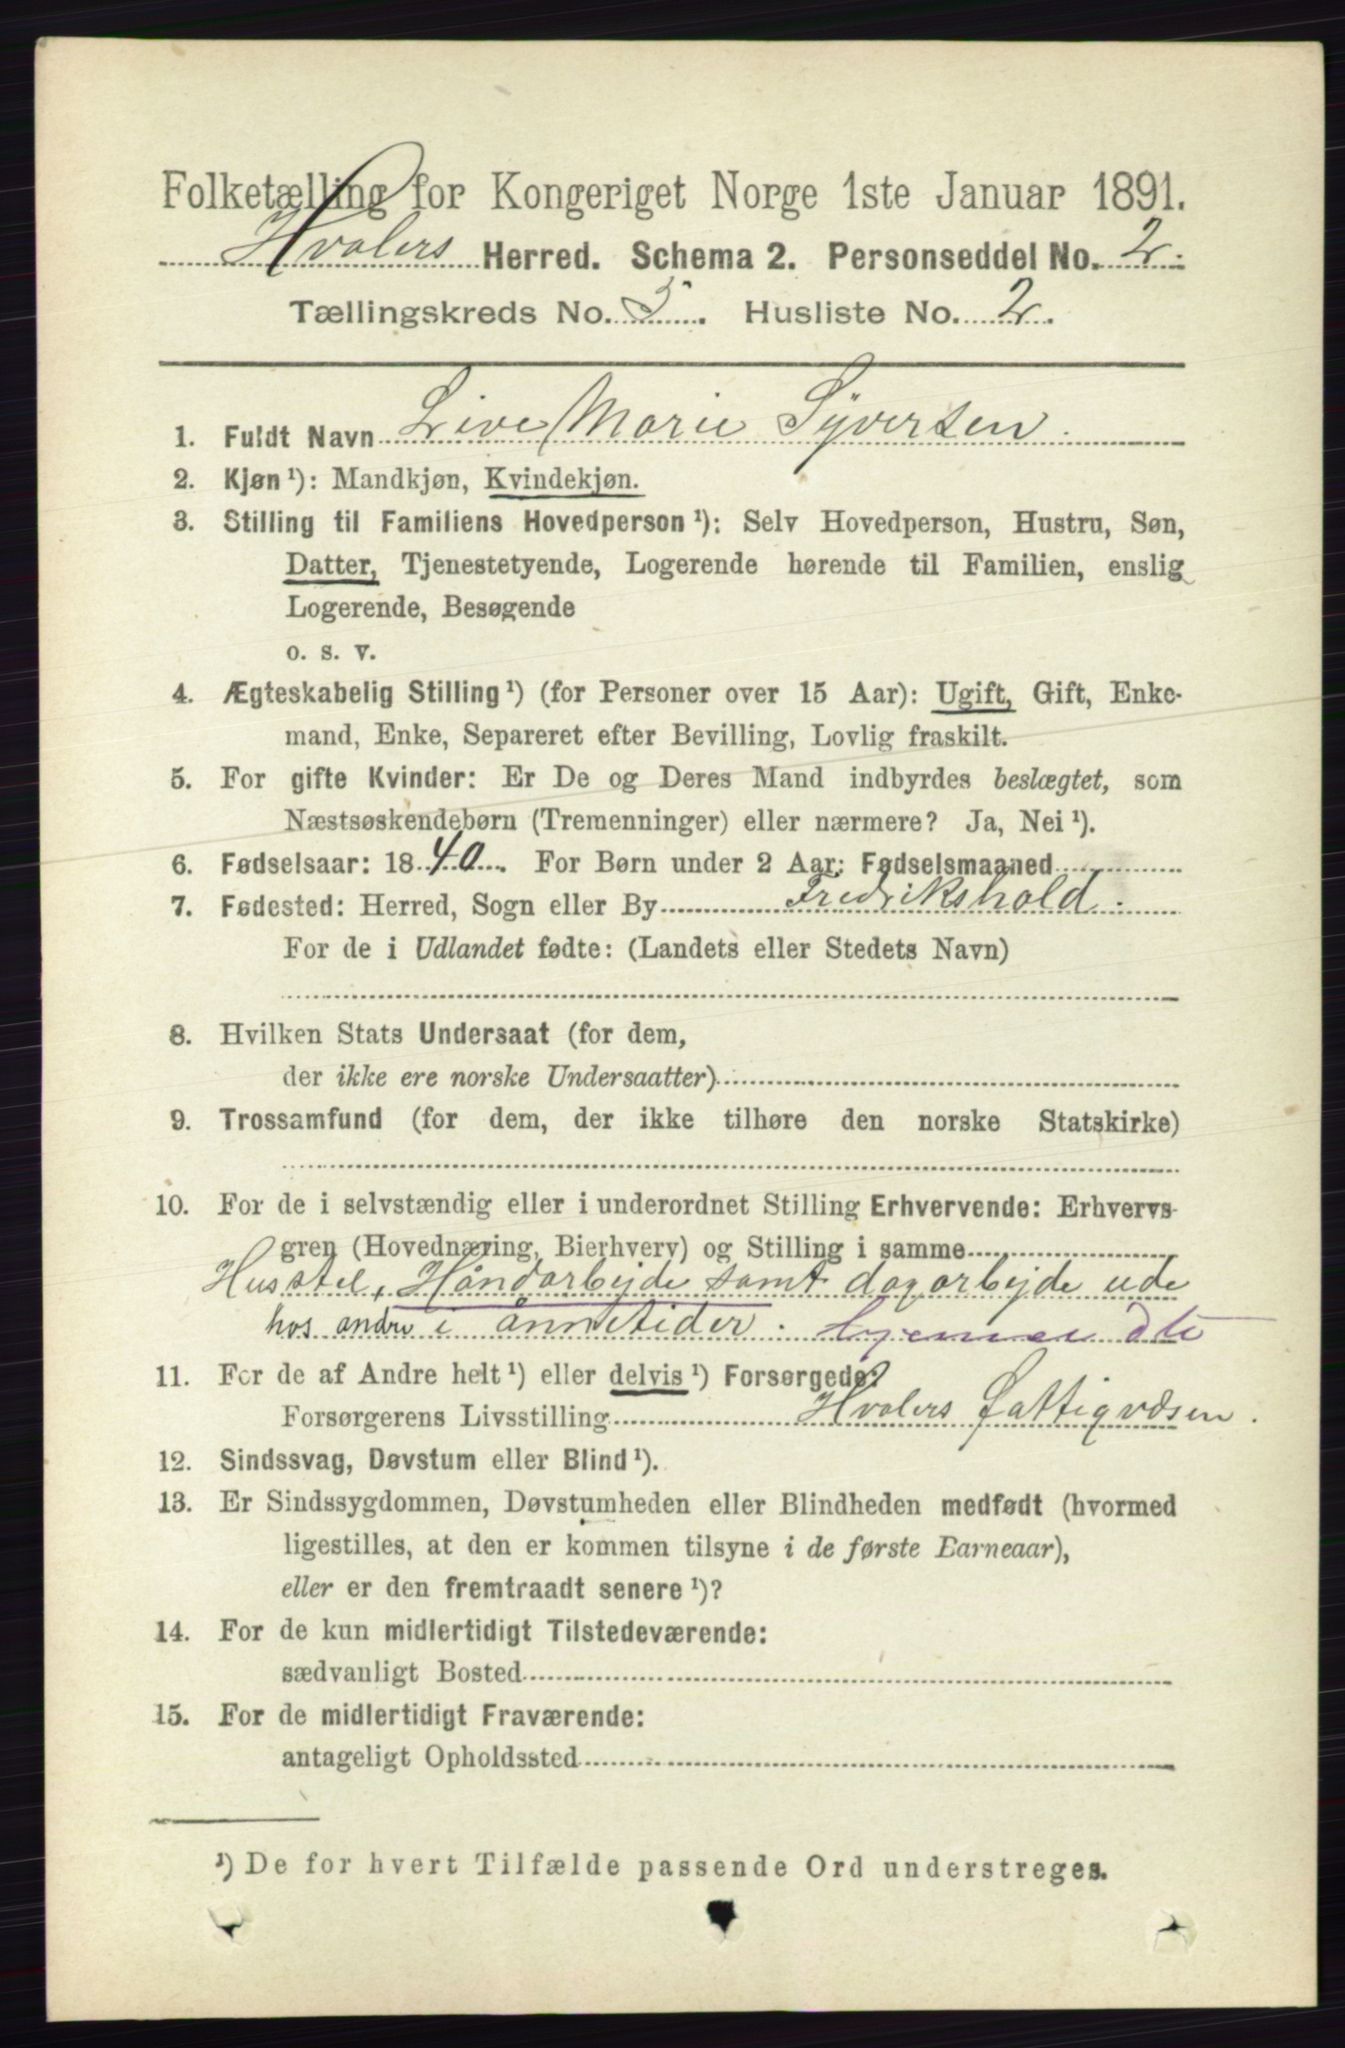 Folketælling for Kongeriget Norge 1ste Januar 1891.
Hvalers Herred. Schema 2. Personseddel No. 2.
Tællingskreds No. 3. Husliste No. 2.
1. Fuldt Navn Live Marie Syversen.
2. Kjøn ¹): Mandkjøn, Kvindekjøn.
3. Stilling til Familiens Hovedperson ¹): Selv Hovedperson, Hustru, Søn,
Datter, Tjenestetyende, Logerende hørende til Familien, enslig
Logerende, Besøgende
o. s. v.
4. Ægteskabelig Stilling ¹) (for Personer over 15 Aar): Ugift, Gift, Enke-
mand, Enke, Separeret efter Bevilling, Lovlig fraskilt.
5. For gifte Kvinder: Er De og Deres Mand indbyrdes beslægtet, som
Næstsøskendebørn (Tremenninger) eller nærmere? Ja, Nei ¹).
6. Fødselsaar: 1840. For Børn under 2 Aar: Fødselsmaaned
7. Fødested: Herred, Sogn eller By Fredrikshald.
For de i Udlandet fødte: (Landets eller Stedets Navn)
8. Hvilken Stats Undersaat (for dem,
der ikke ere norske Undersaatter)
9. Trossamfund (for dem, der ikke tilhøre den norske Statskirke)
10. For de i selvstændig eller i underordnet Stilling Erhvervende: Erhvervs-
gren (Hovednæring, Bierhverv) og Stilling i samme
Husstel, Håndarbejde samt dagarbejde ude
hos andre i ånnetider.
11. For de af Andre helt ¹) eller delvis ¹) Forsørgede:
Forsørgerens Livsstilling Hvalers Fattigvæsen.
12. Sindssvag, Døvstum eller Blind ¹).
13. Er Sindssygdommen, Døvstumheden eller Blindheden medfødt (hvormed
ligestilles, at den er kommen tilsyne i de første Barneaar),
eller er den fremtraadt senere ¹)?
14. For de kun midlertidigt Tilstedeværende:
sædvanligt Bosted
15. For de midlertidigt Fraværende:
antageligt Opholdssted
¹) De for hvert Tilfælde passende Ord understreges.